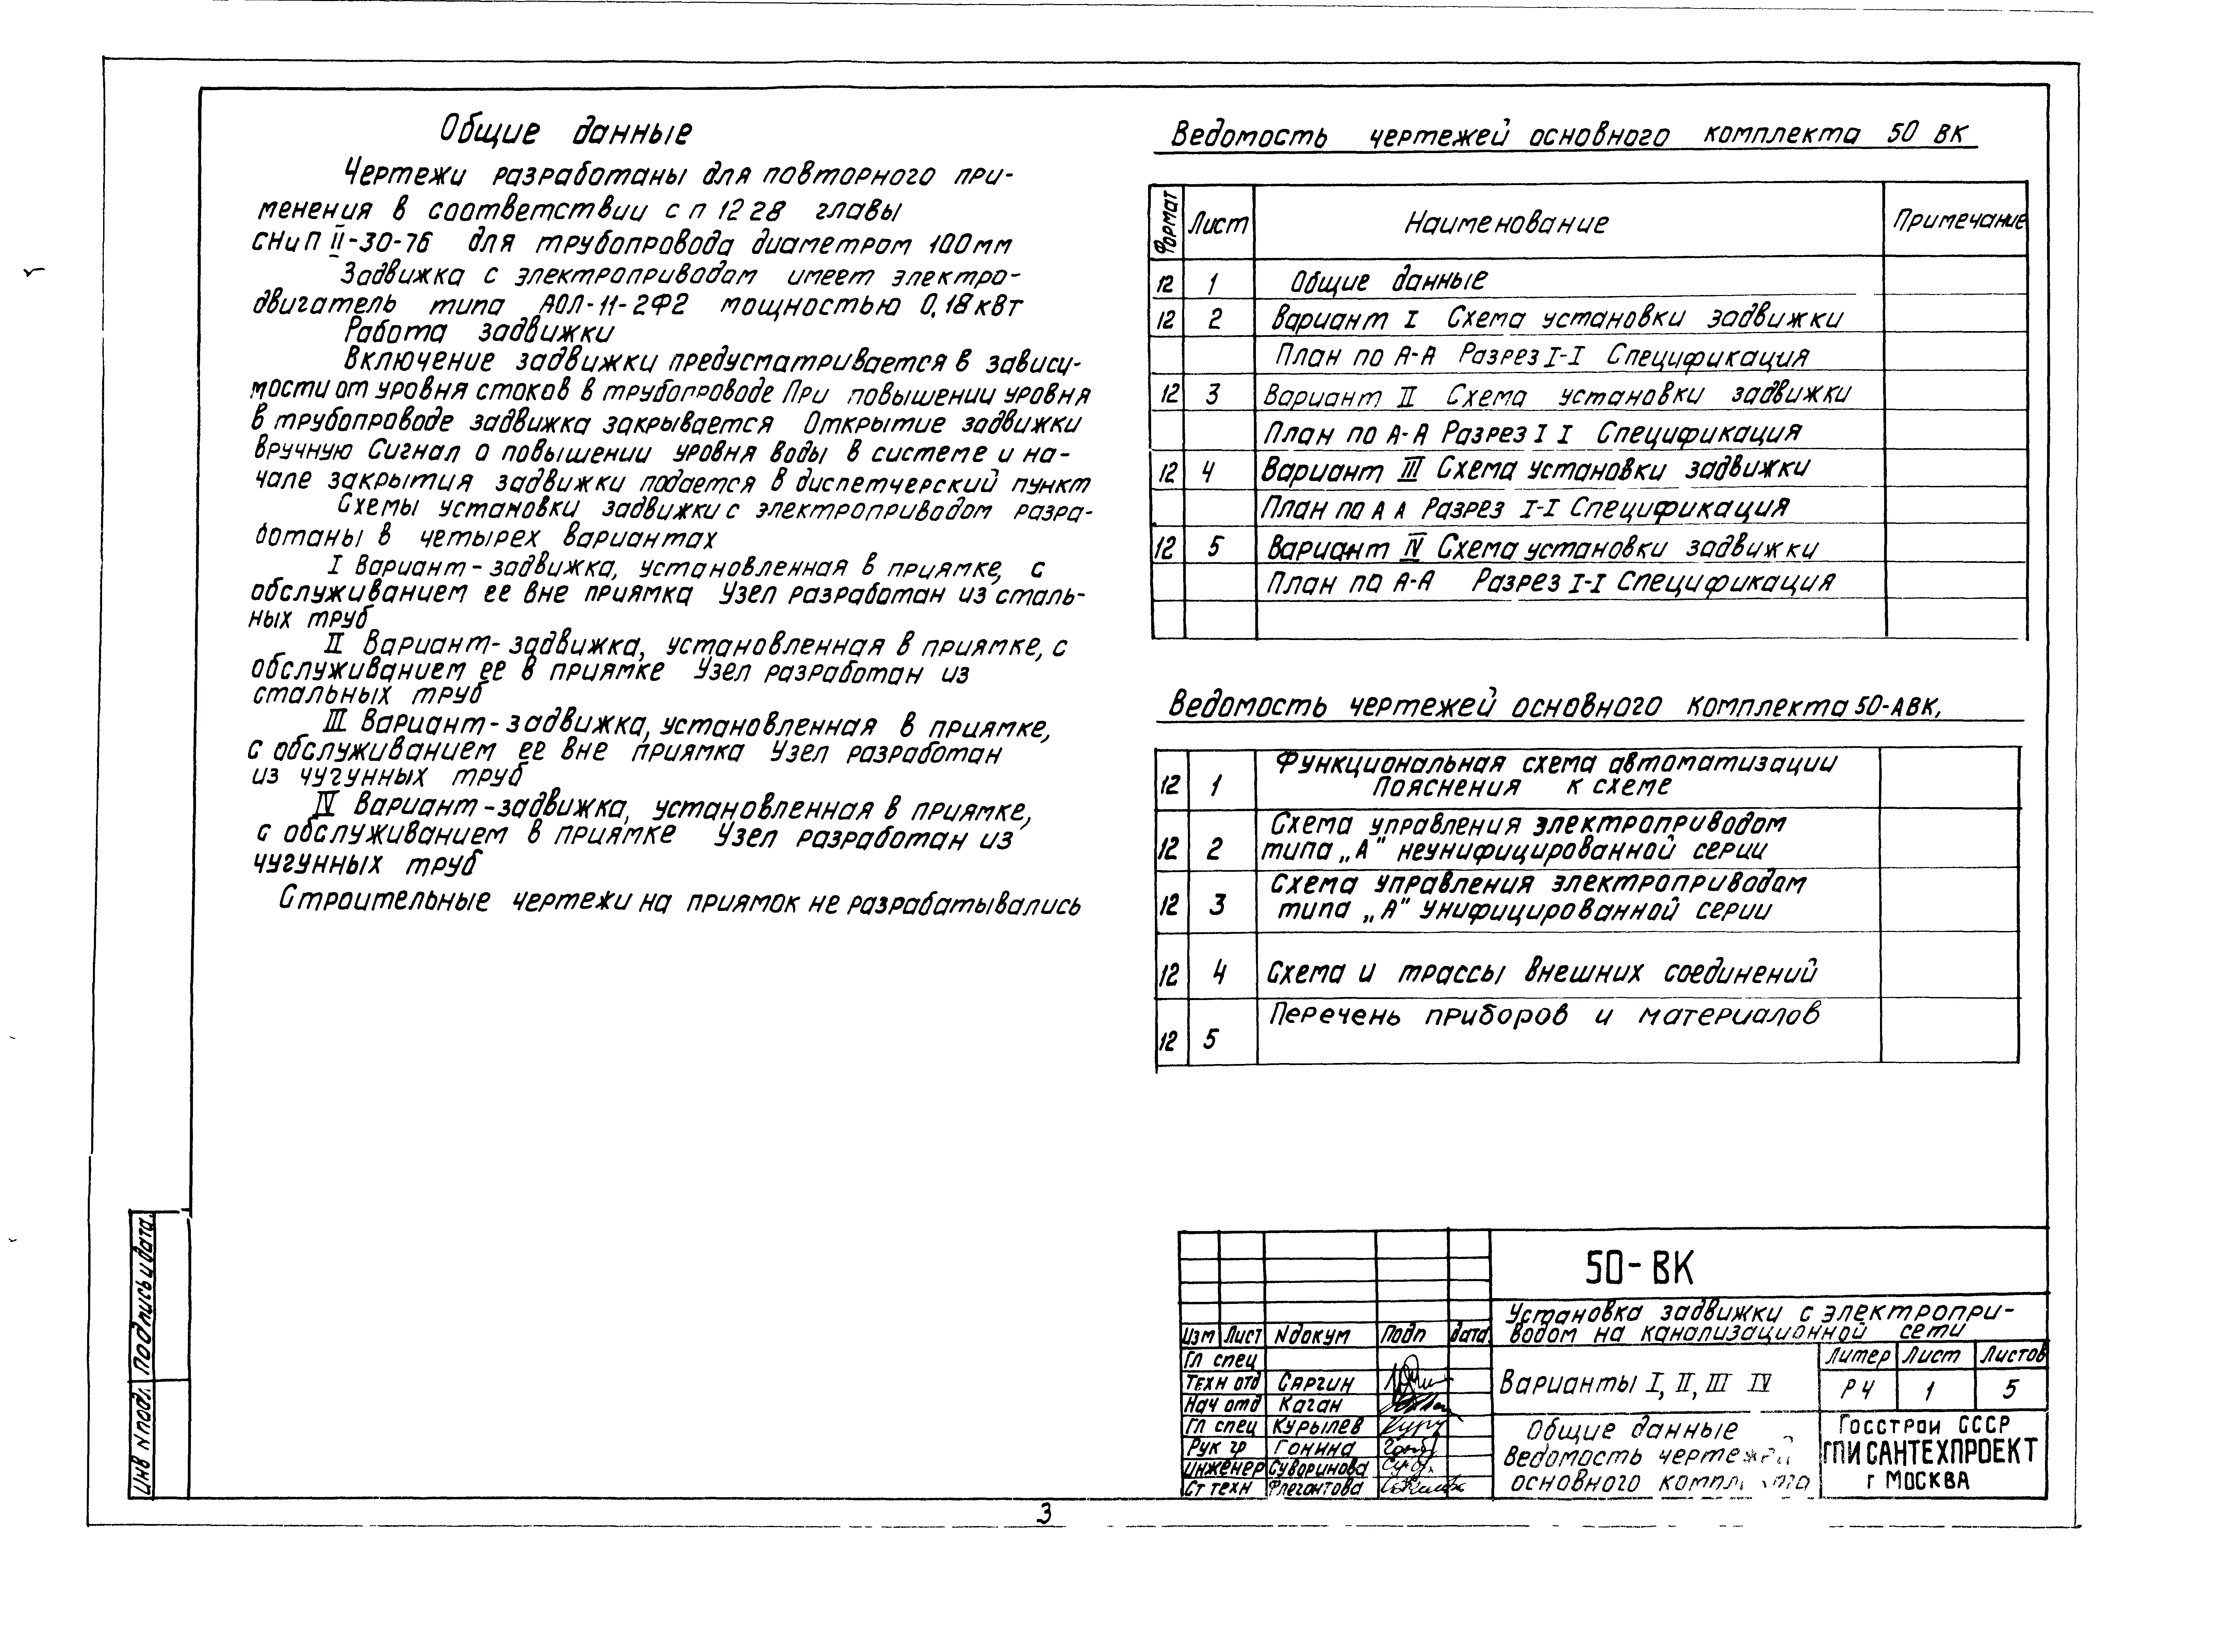 Общие данные
Чертежи разработаны для повторного при-
менения в соответствии с п 12 28 главы
СНиП II-30-76 для трубопровода диаметром 100мм
Задвижка с электроприводом имеет электро-
двигатель типа АОЛ-11-2Ф2 мощностью 0,18 квт
Работа задвижки
Включение задвижки предусматривается в зависи-
мости от уровня стоков в трубопроводе При повышении уровня
в трубопроводе задвижка закрывается Открытие задвижки
вручную Сигнал о повышении уровня воды в системе и на-
чале закрытия задвижки подается в диспетчерский пункт
Схемы установки задвижки с электроприводом разра-
ботаны в четырех вариантах
I Вариант-задвижка, установленная в приямке, с
обслуживанием ее вне приямка Узел разработан из сталь-
ных труб
II Вариант-задвижка, установленная в приямке, с
обслуживанием ее в приямке Узел разработан из
стальных труб
III Вариант-задвижка, установленная в приямке,
с обслуживанием ее вне приямка Узел разработан
из чугунных труб
IV Вариант-задвижка, установленная в приямке,
с обслуживанием в приямке Узел разработан из
чугунных труб
Строительные чертежи на приямок не разрабатывались
Ведомость чертежей основного комплекта 50 ВК
Формат Лист Наименование Примечание
12 1 Общие данные
12 2 Вариант I Схема установки задвижки
План по А-А Разрез I-I Спецификация
12 3 Вариант II Схема установки задвижки
План по А-А Разрез I I Спецификация
12 4 Вариант III Схема установки задвижки
План по А А Разрез I-I Спецификация
12 5 Вариант IV Схема установки задвижки
План по А-А Разрез I-I Спецификация
Ведомость чертежей основного комплекта 50-АВК,
12 1 Функциональная схема автоматизации
Пояснения к схеме
12 2 Схема управления электроприводом
типа „А" неунифицированной серии
12 3 Схема управления электроприводом
типа „А" унифицированной серии
12 4 Схема и трассы внешних соединений
12 5 Перечень приборов и материалов
50-ВК
Установка задвижки с электропри-
водом на канализационной сети
Изм Лист Nдокум Подп Дата
Гл спец
Техн отд Саргин
Нач отд Каган
Гл спец Курылев
Рук гр Гонина
Инженер Суворинова
Ст техн Флегонтова
Варианты I, II, III IV
Литер Лист Листов
РЧ 1 5
Общие данные
Ведомость чертежей
основного комплекта
Госстрои СССР
ГПИ САНТЕХПРОЕКТ
г МОСКВА
Инв Nподл. Подпись и дата.
3